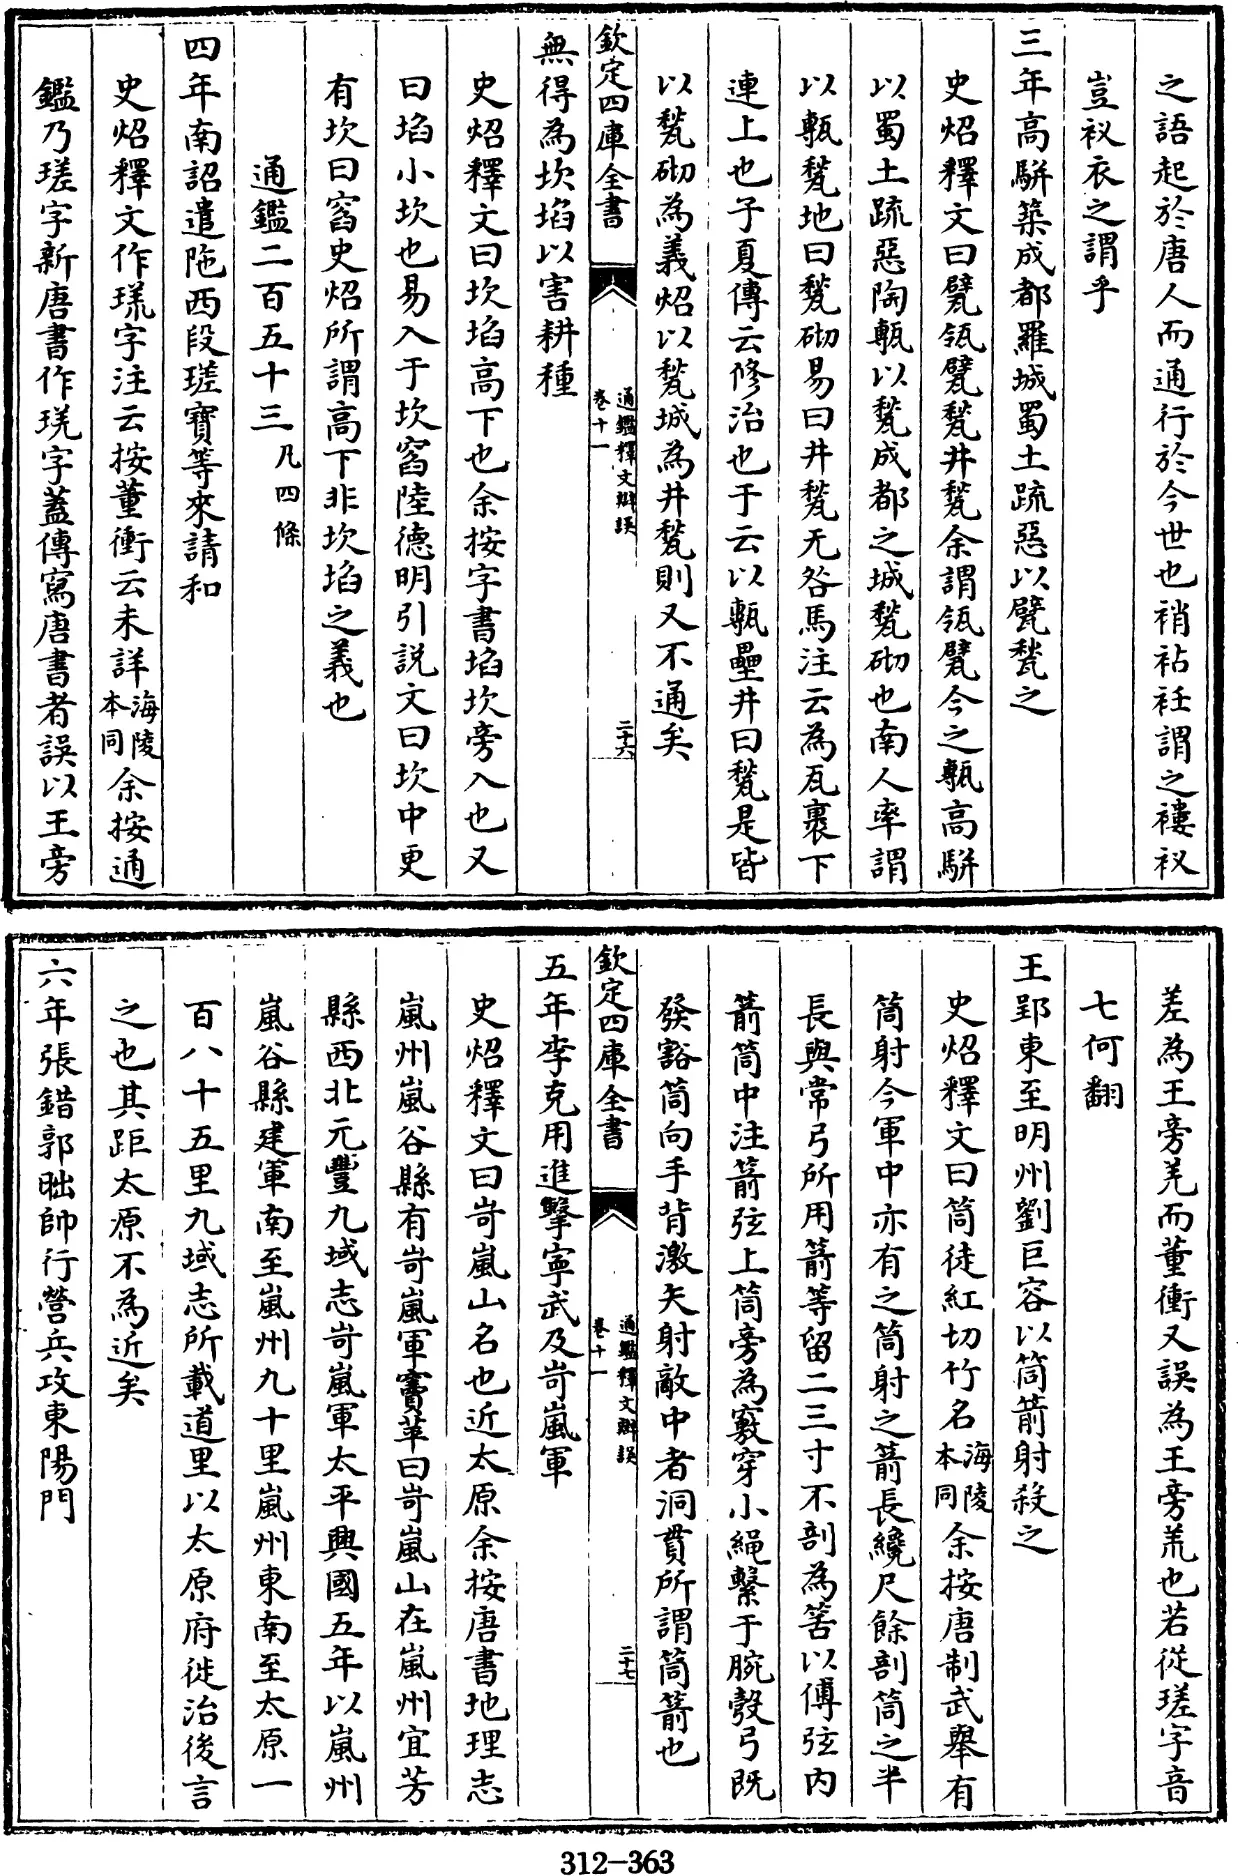 之語起於唐人而通行於今世也䙰袩衽謂之褸衩
豈衩衣之謂乎
三年高駢築成都羅城蜀土疏惡以甓甃之
史炤釋文曰甓瓴甓甃井甃余謂瓴甓今之甎高駢
以蜀土疏惡陶甎以甃成都之城甃砌也南人率謂
以甎甃地曰甃砌易曰井甃无咎馬注云為瓦裏下
連上也子夏傳云修治也于云以甎壘井曰甃是皆
以甃砌為義炤以甃城為井甃則又不通矣
欽定四庫全書
通鑑釋文辯誤
卷十一
二十六
無得為坎埳以害耕種
史炤釋文曰坎埳高下也余按字書埳坎旁入也又
曰埳小坎也易入于坎窞陸德明引説文曰坎中更
有坎曰窞史炤所謂高下非坎埳之義也
通鑑二百五十三凡四條
四年南詔遣陁西段瑳寶等來請和
史炤釋文作㼆字注云按董衝云未詳海陵本同余按通
鑑乃瑳字新唐書作㼁字蓋傳寫唐書者誤以王旁
差為王旁羌而董衝又誤為王旁㡃也若從瑳字音
七何翻
王郢東至明州劉巨容以筒箭射殺之
史炤釋文曰筒徒紅切竹名海陵本同余按唐制武舉有
筒射今軍中亦有之筒射之箭長纔尺餘剖筒之半
長與常弓所用箭等留二三寸不剖為筈以傅弦内
箭筒中注箭弦上筒旁為竅穿小繩繫于腕彀弓既
發豁筒向手背激矢射敵中者洞貫所謂筒箭也
欽定四庫全書
通鑑釋文辯誤
卷十一
二十七
五年李克用進擊寧武及岢嵐軍
史炤釋文曰岢嵐山名也近太原余按唐書地理志
嵐州嵐谷縣有岢嵐軍竇苹曰岢嵐山在嵐州宜芳
縣西北元豐九域志岢嵐軍太平興國五年以嵐州
嵐谷縣建軍南至嵐州九十里嵐州東南至太原一
百八十五里九域志所載道里以太原府徙治後言
之也其距太原不為近矣
六年張錯郭昢帥行營兵攻東陽門
312-363